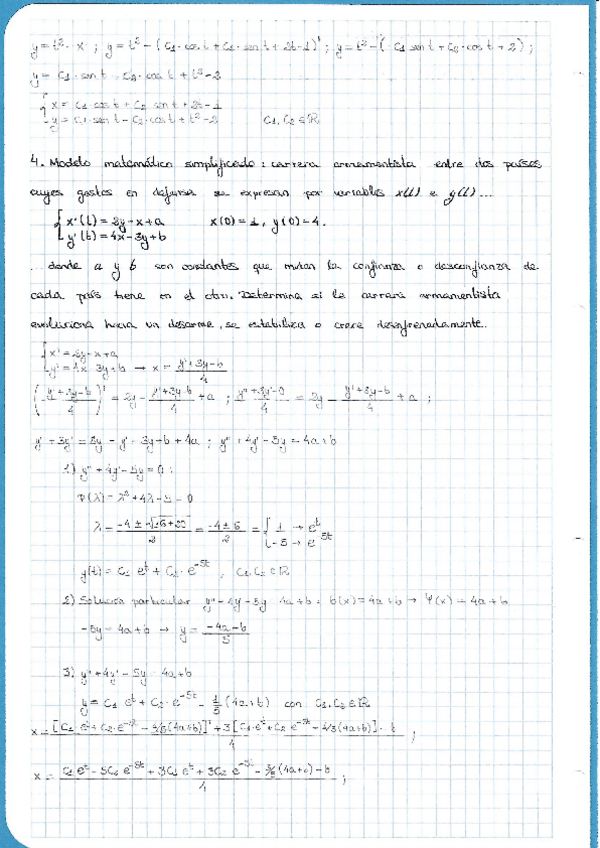 y = t² - x' ; y = t² - (C1·cos t + C2·sen t + 2t - 1)' ; y = t² - (-C1 sen t + C2·cos t + 2) ;
y = C1·sen t - C2·cos t + t² - 2
{ x = C1·cos t + C2 sen t + 2t - 1
y = C1·sen t - C2·cos t + t² - 2      C1, C2 ∈ ℝ
4. Modelo matemático simplificado: carrera armamentista entre dos países
cuyos gastos en defensa se expresan por variables x(t) e y(t)...
{ x'(t) = 2y - x + a      x(0) = 1, y(0) = 4.
y'(t) = 4x - 3y + b
... donde a y b son constantes que miden la confianza o desconfianza de
cada país tiene en el otro. Determina si la carrera armamentista
evoluciona hacia un desarme, se estabiliza o crece desenfrenadamente.
{ x' = 2y - x + a
y' = 4x - 3y + b → x = (y' + 3y - b)/4
((y' + 3y - b)/4)' = 2y - (y' + 3y - b)/4 + a ; (y'' + 3y' - 0)/4 = 2y - (y' + 3y - b)/4 + a ;
y'' + 3y' = 8y - y' - 3y + b + 4a ; y'' + 4y' - 5y = 4a + b
1) y'' + 4y' - 5y = 0 :
P(λ) = λ² + 4λ - 5 = 0
λ = (-4 ± √(16 + 20))/2 = (-4 ± 6)/2 = { 1 → e^t
-5 → e^-5t
y(t) = C1 e^t + C2·e^-5t , C1, C2 ∈ ℝ
2) Solución particular y'' + 4y' - 5y = 4a + b : b(x) = 4a + b → Ψ(x) = 4a + b
-5y = 4a + b → y = (-4a - b)/5
3) y'' + 4y' - 5y = 4a + b
y = C1 e^t + C2·e^-5t - 1/5 (4a + b) con C1, C2 ∈ ℝ
x = ([C1 e^t + C2·e^-5t - 1/5(4a + b)]' + 3[C1·e^t + C2 e^-5t - 1/5(4a + b)] - b)/4 ;
x = (C1 e^t - 5C2 e^-5t + 3C1 e^t + 3C2 e^-5t - 3/5 (4a + b) - b)/4 ;